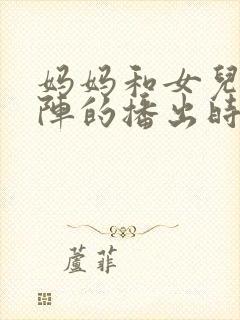 妈妈和女兒
陣的播出時
蘆菲